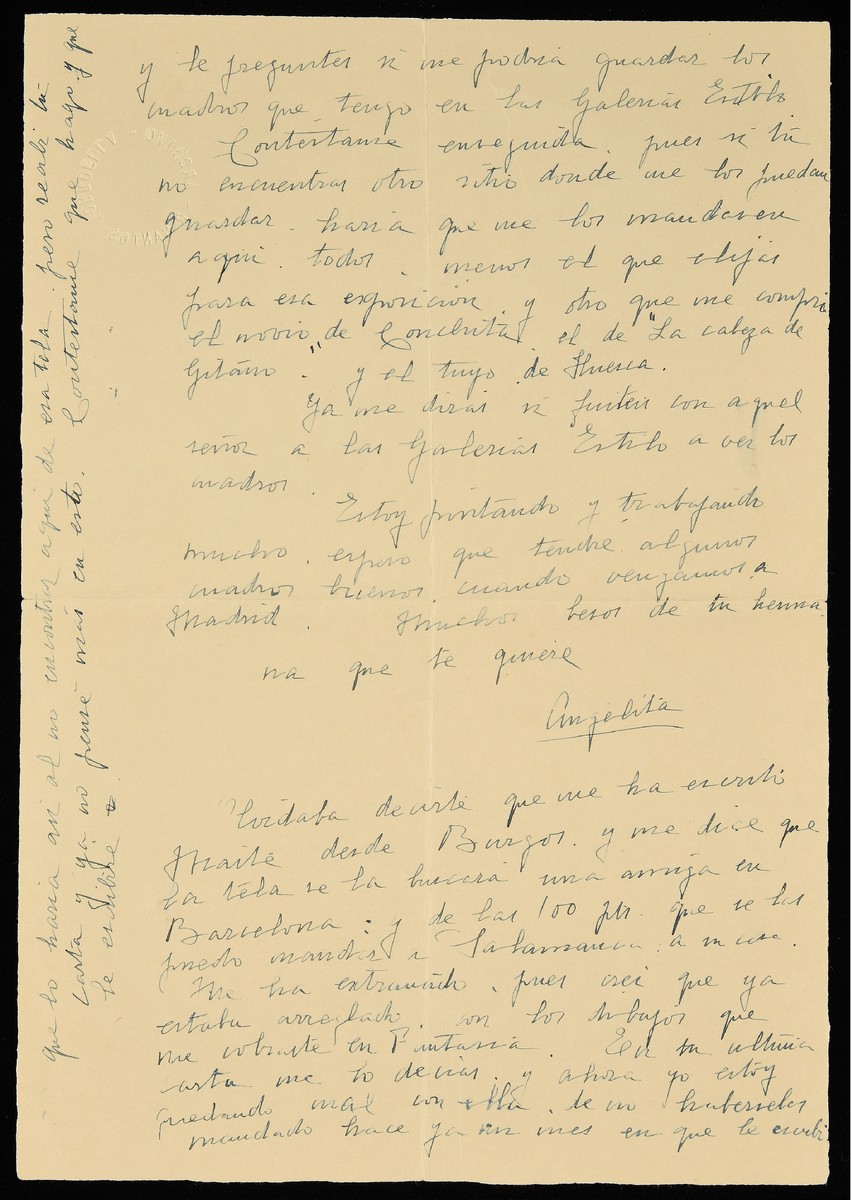 y le preguntes si me podria guardar los
cuadros que tengo en las Galerias Estilo
Contestame enseguida. pues si tú
no encuentras otro sitio donde me los puedan
guardar. haria que me los mandasen
aqui. todos. menos el que elijas
para esa exposición. y otro que me compra
el novio de Conchita. el de "La cabeza de
Gitano". y el tuyo de Huesca.
Ya me dirás si fuiteis con aquel
señor a las Galerias Estilo a ver los
cuadros.
Estoy pintando y trabajando
mucho. espero que tendré algunos
cuadros buenos. cuando vengamos a
Madrid. Muchos besos de tu herma-
na que te quiere
Angelita
Olvidaba decirte que me ha escrito
Maité desde Burgos. y me dice que
la tela se la buscará una amiga en
Barcelona. y de las 100 pts. que se las
puedo mandar a Salamanca. a su casa.
Me ha extrañado. pues crei que ya
estaba arreglado. con los dibujos que
me cobraste en Fantasia. En tu ultima
carta me lo decias. y ahora yo estoy
quedando mal con ella. de no haberselas
mandado hace ya un mes en que le escribi
que lo haria asi al no encontrar aqui de esa tela. pero recibi tu
carta y ya no pensé más en esto. Contestame que hago y que
le escribiré